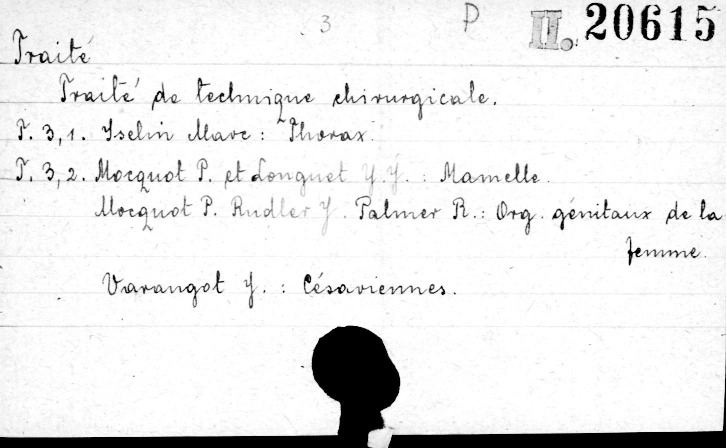 3 P II. 20615
Traité
Traité de technique chirurgicale.
T. 3,1. Iselin Marc : Thorax.
T. 3,2. Mocquot P. et Longuet Y.Y. : Mamelle.
Mocquot P. Rudler Y. Palmer R. : Org. génitaux de la
femme.
Varangot Y. : Césariennes.